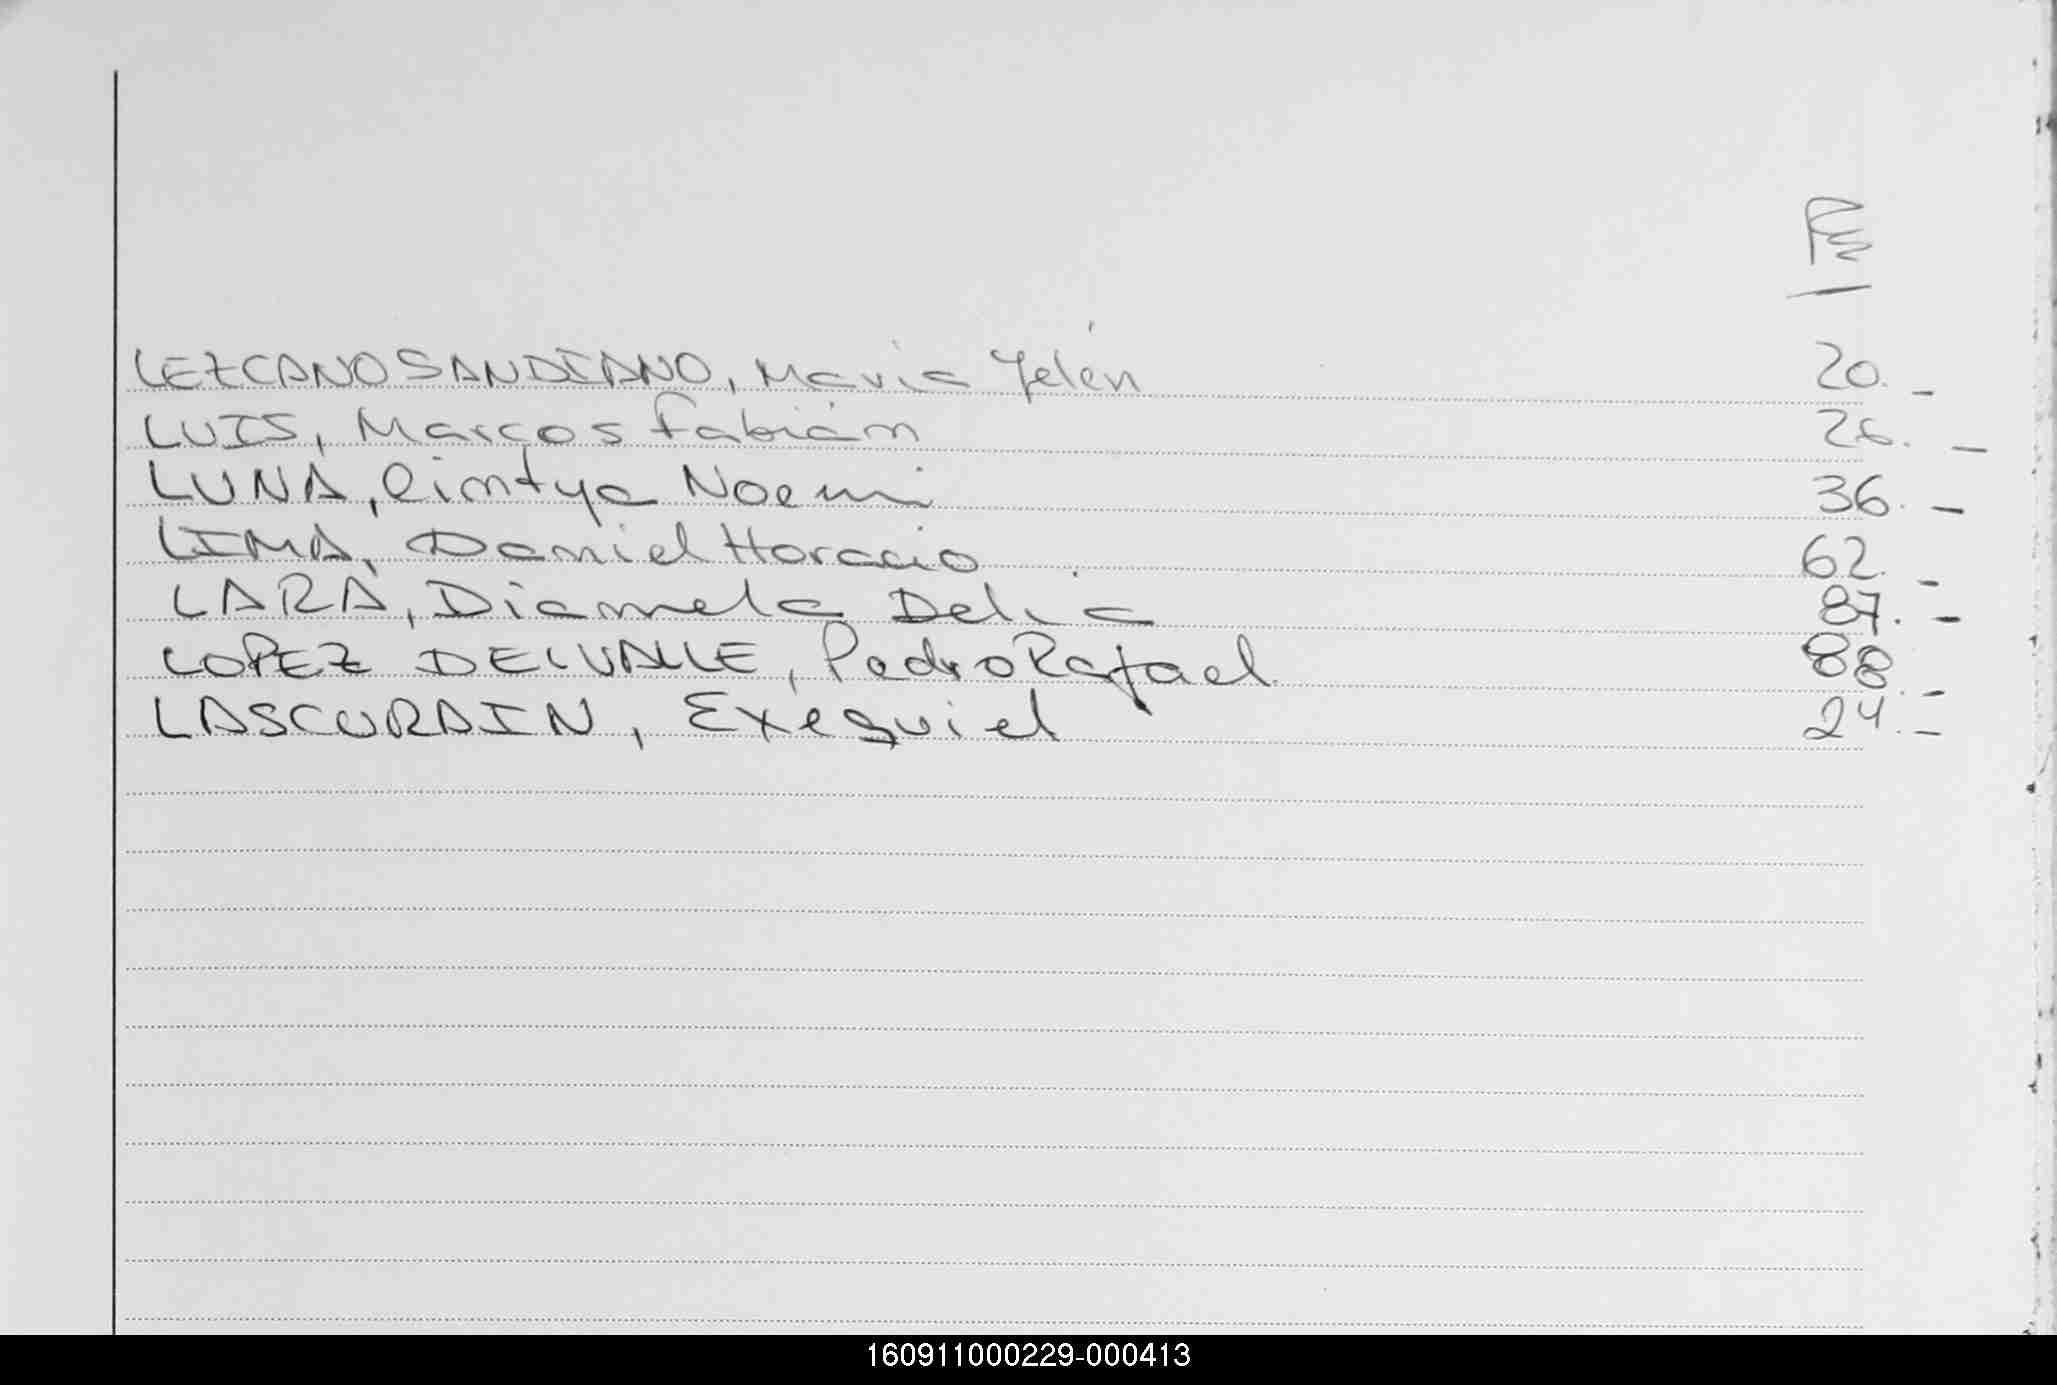 LEZCANO SANDIANO, María Yelén 20.-
LUIS, Marcos Fabián 26.-
LUNA, Cintya Noemi 36.-
LIMA, Daniel Horacio 62.-
LARA, Diamela Delia 87.-
LOPEZ DELVALLE, Pedro Rafael 88.-
LASCURAIN, Exequiel 24.-
160911000229-000413